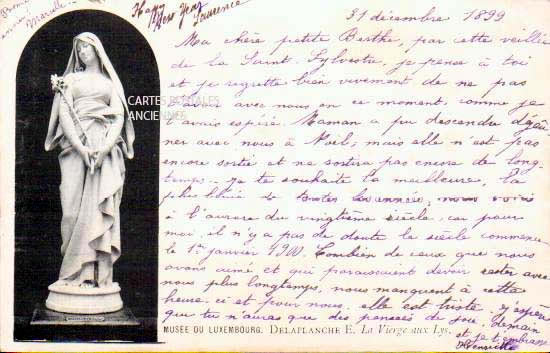 Happy
New Year
Laurence
31 décembre 1899
Ma chère petite Berthe, par cette veillée
de la Saint-Sylvestre, je pense à toi
et je regrette bien vivement de ne pas
avec nous en ce moment, comme je
l'avais espéré. Maman a pu descendre déjeu
ner avec nous à Noël, mais elle n'est pas
encore sortie et ne sortira pas encore de long-
temps. Je te souhaite la meilleure, la
de toutes les années, nous voici
à l'aurore du vingtième siècle, car pour
moi il n'y a pas de doute le siècle commence
le 1er janvier 1900. Combien de ceux que nous
avons aimé et qui paraissaient devoir rester avec
nous plus longtemps, nous manquent à cette
heure ci et pour nous, elle est triste, j'espère
que tu n'auras que des pensées de joie, demain
et je t'embrasse
Henriette
CARTES POSTALES
ANCIENNES
MUSÉE DU LUXEMBOURG. DELAPLANCHE E. La Vierge aux Lys.